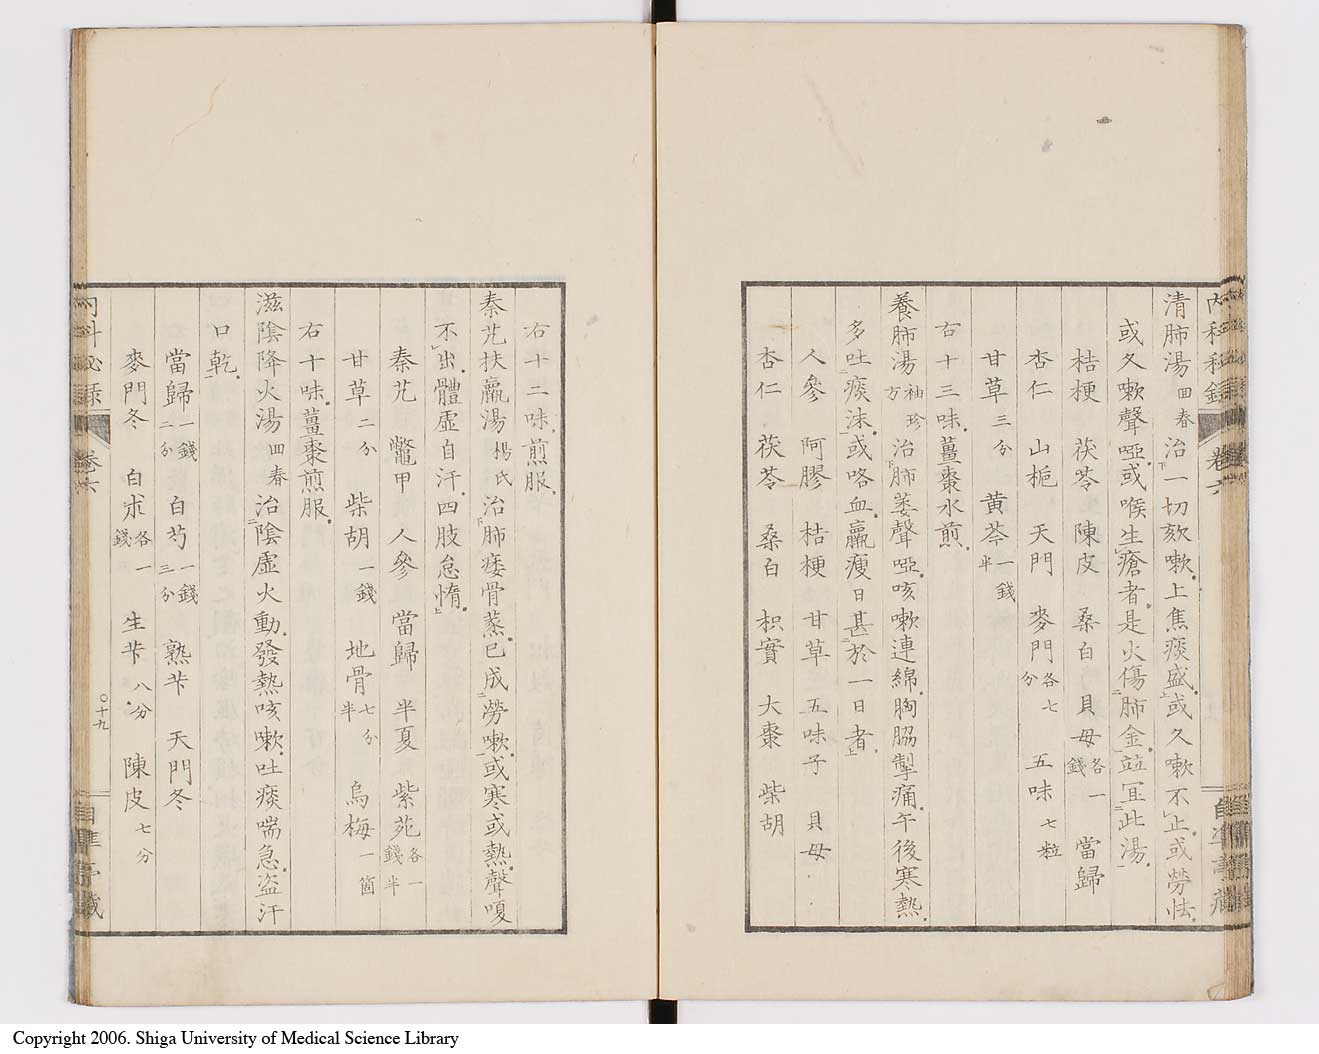 内科秘録 卷六 自準亭藏
清肺湯 回春 治一切欬嗽上焦痰盛或久嗽不止或勞怯
或久嗽聲啞或喉生瘡者是火傷肺金竝宜此湯
桔梗 茯苓 陳皮 桑白 貝母 各一錢 當歸
杏仁 山梔 天門 麥門 各七分 五味 七粒
甘草 三分 黃芩 一錢半
右十三味薑棗水煎
養肺湯 袖珍方 治肺萎聲啞咳嗽連綿胸脇掣痛午後寒熱
多吐痰沫或咯血羸瘦日甚於一日者
人參 阿膠 桔梗 甘草 五味子 貝母
杏仁 茯苓 桑白 枳實 大棗 柴胡
右十二味煎服
秦艽扶羸湯 楊氏 治肺痿骨蒸已成勞嗽或寒或熱聲嗄
不出體虛自汗四肢怠惰
秦艽 鼈甲 人參 當歸 半夏 紫菀 各一錢半
甘草 二分 柴胡 一錢 地骨 七分半 烏梅 一箇
右十味薑棗煎服
滋陰降火湯 回春 治陰虛火動發熱咳嗽吐痰喘急盜汗
口乾
當歸 一錢二分 白芍 一錢三分 熟芐 天門冬
麥門冬 白朮 各一錢 生芐 八分 陳皮 七分
内科秘録 卷六 〇十九 自準亭藏
Copyright 2006. Shiga University of Medical Science Library